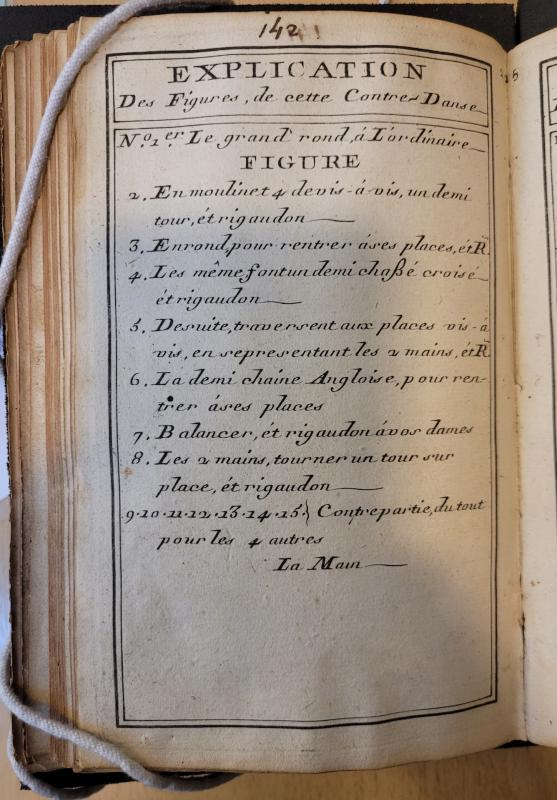 142
EXPLICATION
Des Figures, de cette Contre-Danse
No. 1er. Le grand rond, á L'ordinaire
FIGURE
2. En moulinet 4 de vis-á-vis, un demi
tour, ét rigaudon
3. En rond, pour rentrer á ses places, ét R.
4. Les même font un demi chaßé croisé
ét rigaudon
5. De suite, traversent aux places vis-á
vis, en se presentant les 2 mains, ét R.
6. La demi chaine Angloise, pour ren-
trer á ses places
7. Balancer, ét rigaudon á vos dames
8. Les 2 mains, tourner un tour sur
place, ét rigaudon
9·10·11·12·13·14·15·} Contrepartie, du tout
pour les 4 autres
La Main